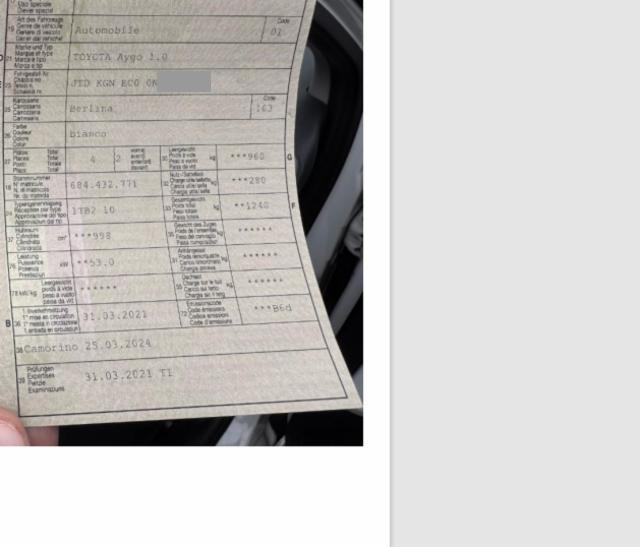 Uso speciale
Art des Fahrzeugs
Genre de véhicule
Genere di veicolo
Code
19 Automobile 01
Marke und Typ
Marque et type
Marca e tipo
Marca e tip
21 TOYOTA Aygo 1.0
Fahrgestell-Nr.
Châssis no
Telaio n.
23 JTD KGN EC0 0N
Karosserie
Carrosserie
Carrozzeria
Carrossaria
Code
25 Berlina 163
Farbe
Couleur
Colore
Colur
26 bianco
Plätze Total
Places Total
Posti Totale
Plazs Total
27 4 2
vorne
avant
avanti
davant
Leergewicht
Poids à vide
Peso a vuoto
Paisa da vid
30 kg ***960 G
Stammnummer
N° matricule
N. di matricola
Nr. da matricla
18 684.432.771
Nutz-/Sattellast
Charge utile/sellette
Carico utile/sella
Chargia utila/sella
32 kg ***280
Typengenehmigung
Réception par type
Approvazione del tipo
Approvaziun dal tip
24 1TB2 10
Gesamtgewicht
Poids total
Peso totale
Paisa totala
33 kg **1240 F
Hubraum
Cylindrée
Cilindrata
37 cm³ ***998
Gewicht des Zuges
Poids de l'ensemble
Peso del convoglio
Paisa cumposiziun
35 kg ******
Leistung
Puissance
Potenza
Prestaziun
76 kW **53.0
Anhängelast
Poids remorquable
Carico rimorchiato
Chargia annexa
31 kg ******
78 kW/kg
Leergewicht
poids à vide
peso a vuoto
paisa da vid
******
Dachlast
Charge sur le toit
Carico sul tetto
Chargia sin il tetg
55 kg ******
1. Inverkehrsetzung
1re mise en circulation
1a messa in circolazione
1. entrada en circulaziun
B 36 31.03.2021
Emissionscode
Code émissions
Codice emissioni
Code d'emissiuns
72 ***B6d
38 Camorino 25.03.2024
Prüfungen
Expertises
Perizie
Examinaziuns
39 31.03.2021 TI